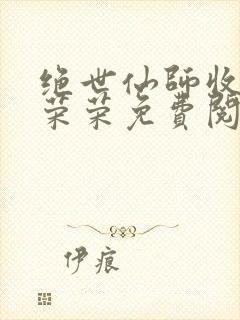 绝世仙师收
菜菜免费阅
伊痕